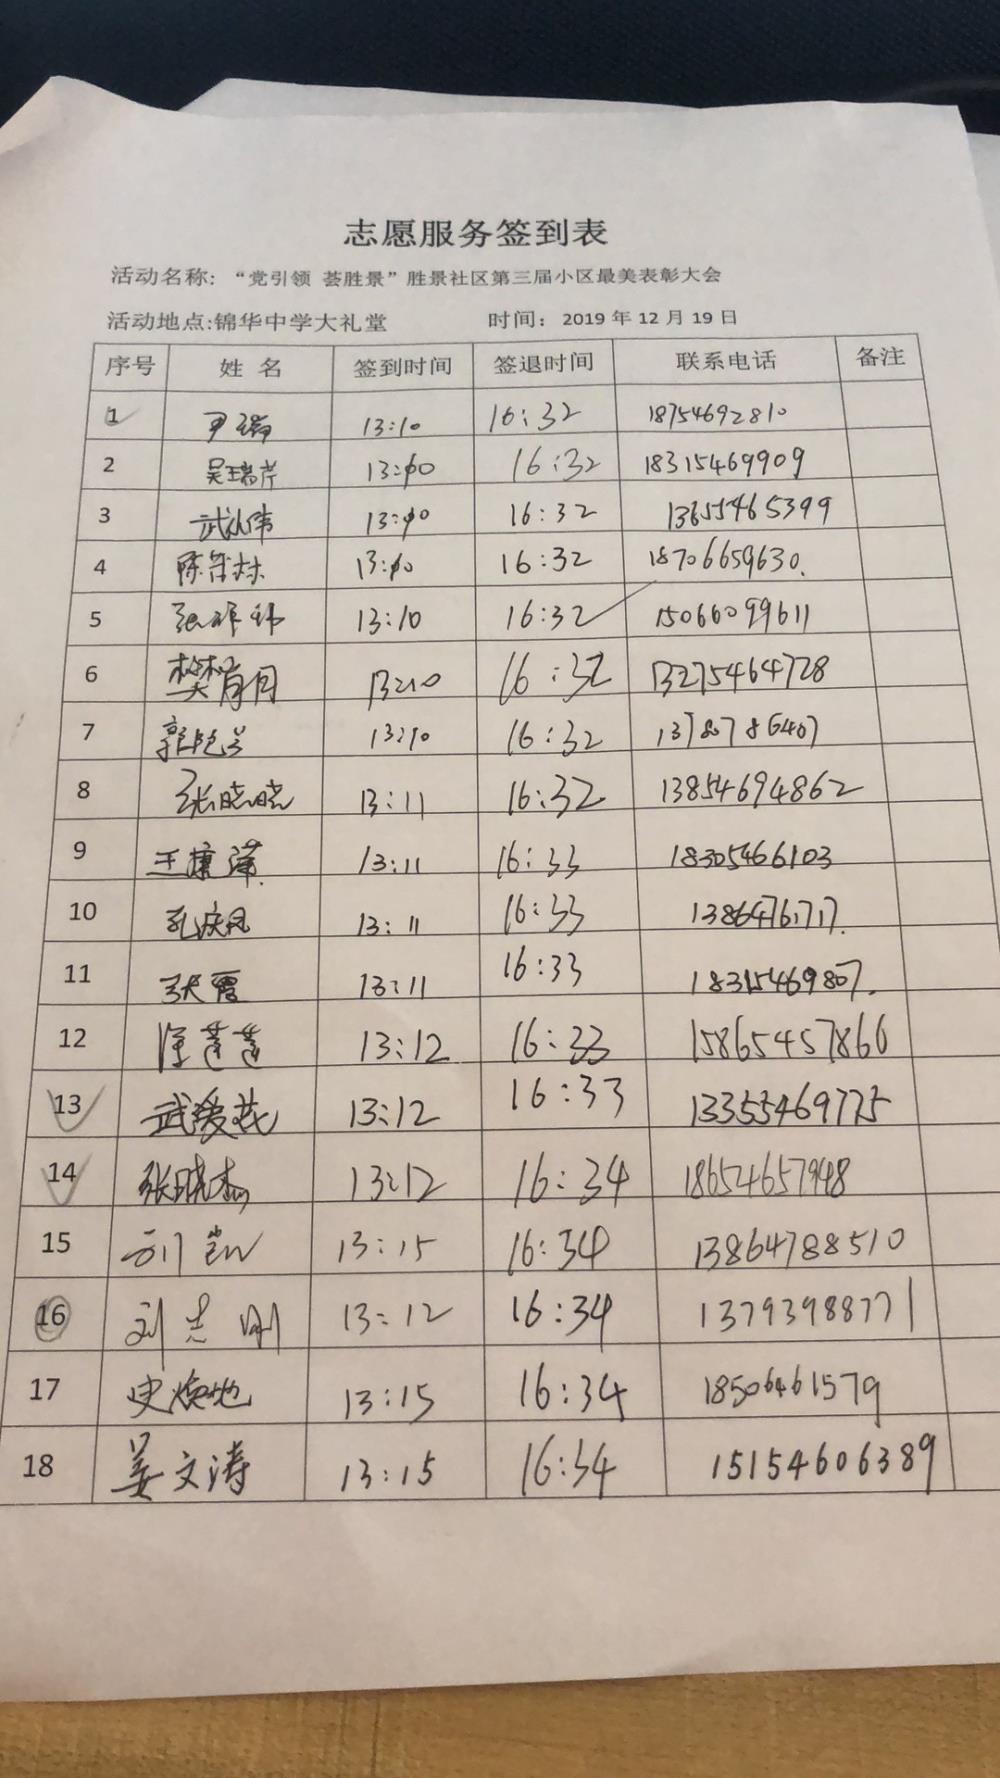 志愿服务签到表
活动名称：“党引领 荟胜景”胜景社区第三届小区最美表彰大会
活动地点:锦华中学大礼堂 时间：2019年12月19日
序号 姓名 签到时间 签退时间 联系电话 备注
1 尹瑞 13:10 16:32 18754692810
2 吴瑞芹 13:10 16:32 18315469909
3 13:10 16:32 13655465399
4 13:10 16:32 18706659630.
5 13:10 16:32 15066099611
6 樊肖月 13:10 16:32 13275464728
7 13:10 16:32
8 张晓晓 13:11 16:32 13854694862
9 王康 13:11 16:33 18305466103
10 孔庆凤 13:11 16:33 13864761717.
11 张霞 13:11 16:33 18315469807.
12 13:12 16:33 15865457860
13 武爱花 13:12 16:33 13355469775
14 张晓杰 13:12 16:34 18654657948
15 刘凯 13:15 16:34 13864788510
16 刘志刚 13:12 16:34 13793988771
17 史焕地 13:15 16:34 18506461579
18 姜文涛 13:15 16:34 15154606389